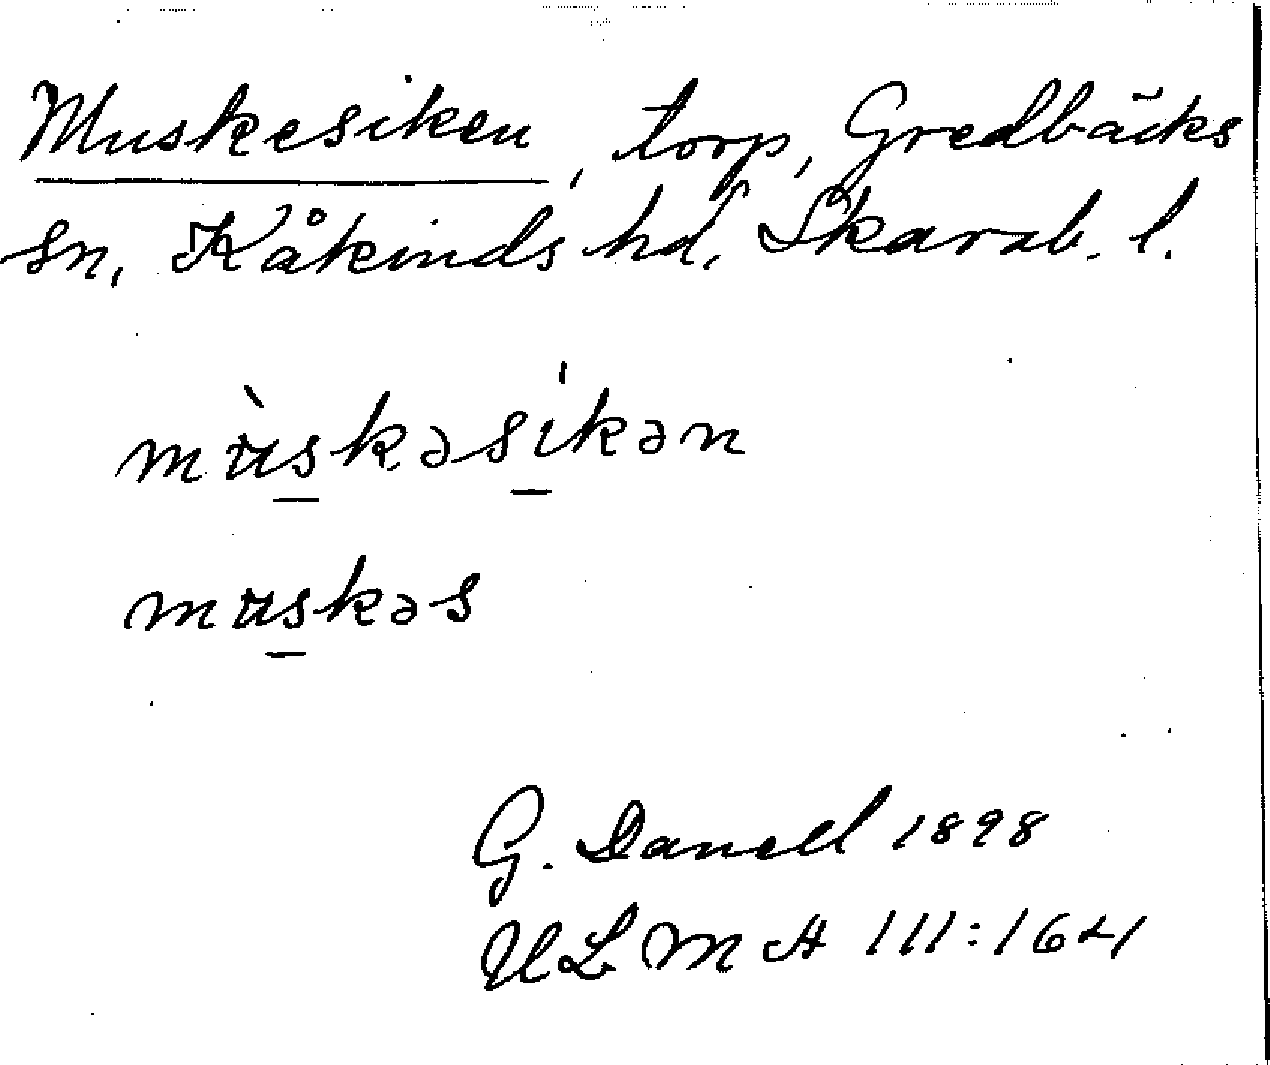 Muskesiken, torp, Gredbäcks
sn, Kåkinds hd, Skarab. l.
mùskəsíkən
muskəs
G. Danell 1898
ULMA 111:1641